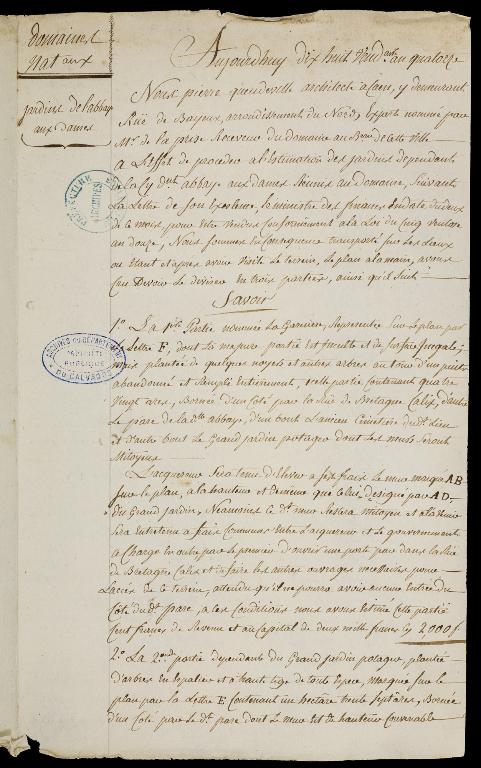 domaines
Nataux
jardins de l'abbaye
aux dames
Aujourdhuy dix huit Vend. an quatorze
Nous pierre queudeville architecte a Caen, y demeurant
Rüe de Bayeux, arrondissement du Nord, Expert nommé par
Mr. de la prise Receveur du domaine au Beau de cette Ville
a L'effet de proceder a l'Estimation des jardins dependants
de la Cy dnt abbaye aux dames Reunis au domaine, Suivant
La Lettre de Son Excellence le ministre des finances, en date du deux
de ce mois, pour Etre vendus Conformement a la Loi du Cinq ventose
an douze, Nous Sommes en Consequence transporté sur les Lieux
ou Etant et apres avoir Visité le terrein, le plan a la main, avons
Cru Devoir le diviser en trois parties, ainsi qu'il Suit
Savoir
1o. La pre. Partie nommée la Garenne, Representée Sur le plan par
Lettre F, dont la majeure partie est inculte et de surface inegale;
plantée de quelques noyers et autres arbres autour d'un puits
abandonné et Rempli Entierement, cette partie Contenant quatre
Vingt ares, Bornée d'un Coté par la Rüe de Bretagne Calix, d'autre
Le parc de la de. abbaye, d'un bout L'ancien Cimetiere du dt. Lieu
et d'autre bout Le Grand jardin potager dont les murs Seront
Mitoyens
L'acquereur Sera tenu d'Elever a Ses fraix Le mur marqué AB
Sur le plan, a la hauteur et Epaisseur que Celui designé par AD.
du Grand jardin, Neanmoins le dt. mur Restera mitoyen et
Sera Entretenu a fraix Communs Entre L'acquereur et Le gouvernement
a Charge en outre par le premier d'ouvrir une porte dans la Rüe
de Bretagne Calix et de faire les autres ouvrages necessaires pour
L'acces de ce terrein, attendu qu'il ne pourra avoir aucune Entrée du
Coté du dt. parc, a ces Conditions nous avons Estimé Cette partie
Cent francs de Revenu et au Capital de deux mille francs Cy 2000f
2o. La 2onde partie dependante du Grand jardin potager, plantée
d'arbres en Espalier et a haute tige de toute Espece, marquée sur le
plan par la Lettre E Contenant un hectare trente Sept ares, Bornée
d'un Coté par le dt. parc dont le mur est de hauteur Convenable
PREFECTURE
ARCHIVES
ARCHIVES DU DEPARTEMENT
PROPRIETE
PUBLIQUE
DU CALVADOS